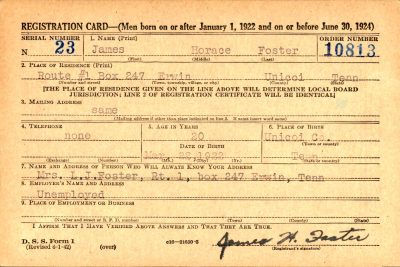 REGISTRATION CARD—(Men born on or after January 1, 1922 and on or before June 30, 1924)
SERIAL NUMBER 1. NAME (Print) ORDER NUMBER
N 23 James Horace Foster 10813
(First) (Middle) (Last)
2. PLACE OF RESIDENCE (Print)
Route #1 Box 247 Erwin Unicoi Tenn
(Number and street) (Town, township, village, or city) (County) (State)
[THE PLACE OF RESIDENCE GIVEN ON THE LINE ABOVE WILL DETERMINE LOCAL BOARD
JURISDICTION; LINE 2 OF REGISTRATION CERTIFICATE WILL BE IDENTICAL]
3. MAILING ADDRESS
same
(Mailing address if other than place indicated on line 2. If same insert word same)
4. TELEPHONE 5. AGE IN YEARS 6. PLACE OF BIRTH
none 20 Unicoi Co.
DATE OF BIRTH (Town or county)
1922 Tenn
(Exchange) (Number) (Mo.) (Day) (Yr.) (State or country)
7. NAME AND ADDRESS OF PERSON WHO WILL ALWAYS KNOW YOUR ADDRESS
Mrs. L.J.Foster, Rt. 1, box 247 Erwin, Tenn
8. EMPLOYER'S NAME AND ADDRESS
Unemployed
9. PLACE OF EMPLOYMENT OR BUSINESS
(Number and street or R. F. D. number) (Town) (County) (State)
I AFFIRM THAT I HAVE VERIFIED ABOVE ANSWERS AND THAT THEY ARE TRUE.
D. S. S. Form 1
(Revised 6-1-42) (over) James H. Foster
(Registrant's signature)